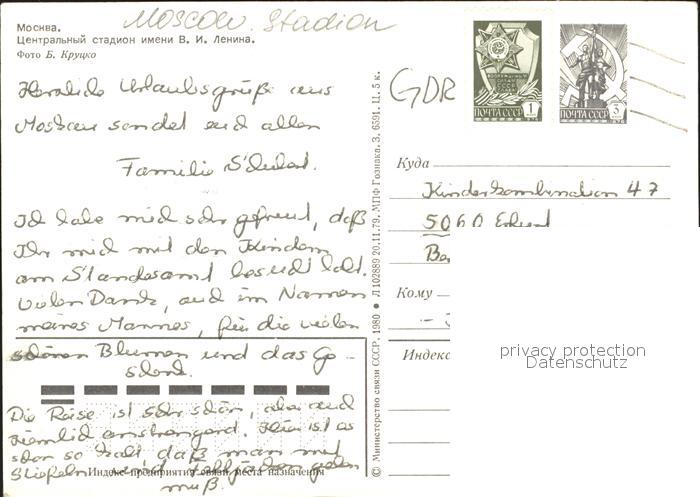 Moscow. Stadion
Москва.
Центральный стадион имени В. И. Ленина.
Фото Б. Круцко
Herzliche Urlaubsgrüße aus
Moskau sendet euch allen
Familie
Ich habe mich sehr gefreut, daß
Ihr mich mit den Kindern
am Standesamt besucht habt.
Vielen Dank, auch im Namen
meines Mannes, für die vielen
schönen Blumen und das Ge-
schenk.
Die Reise ist sehr schön, aber auch
ziemlich anstrengend. Hier ist es
schon so kalt, daß man mit
Stiefeln und gehen
muß.
Индекс предприятия связи места назначения
© Министерство связи СССР, 1980 ● Л 102889 20.11.79. МПФ Гознака. З. 6591. Ц. 5 к.
GDR
ПОЧТА СССР 1
ПОЧТА СССР 3
Куда
Kinderkombination 47
5060 Erfurt
Кому
Индекс
privacy protection
Datenschutz